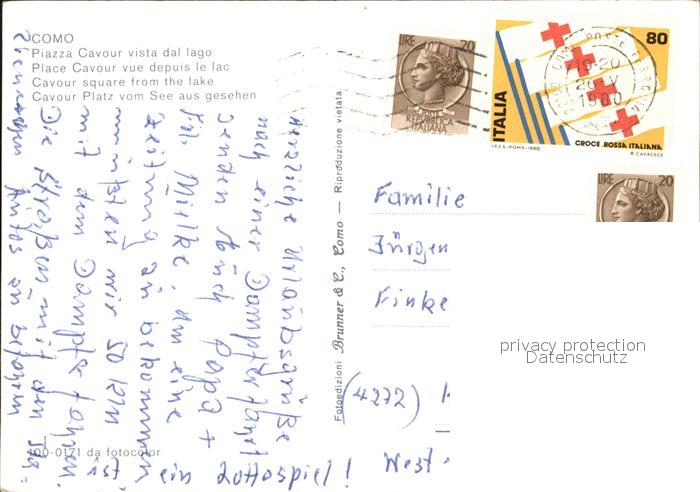 COMO
Piazza Cavour vista dal lago
Place Cavour vue depuis le lac
Cavour square from the lake
Cavour Platz vom See aus gesehen
Herzliche Urlaubsgrüße
nach einer Dampferfahrt
senden Euch Papa +
Frl. Mielke. Um eine
Zeitung zu bekommen
mußten wir 50 km
mit dem Dampfer fahren.
Die Straßen mit den
Autos zu befahren
ist ein Lottospiel!
100-0171 da fotocolor
Fotoedizioni Brunner & C., Como — Riproduzione vietata
LIRE 20
REPUBBLICA ITALIANA
ITALIA
80
19-20
1980
I.P.Z.S.-ROMA-1980
CROCE ROSSA ITALIANA
R. CAVACECE
20
Familie
Jürgen
Finke
(4272)
West
privacy protection
Datenschutz